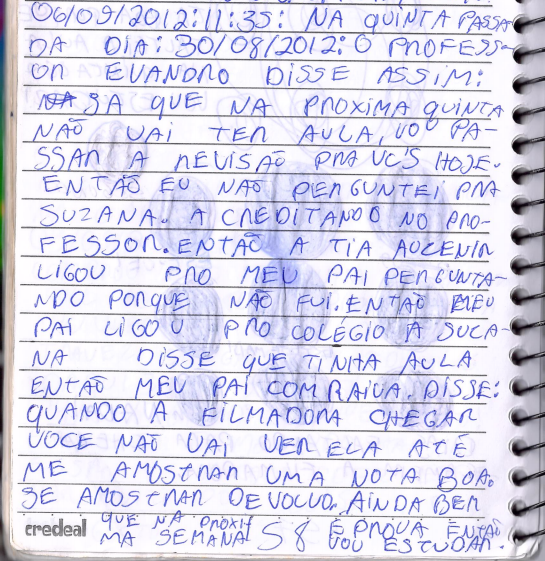 06/09/2012:11:35: NA QUINTA PASSA
DA DIA: 30/08/2012: O PROFESS-
OR EVANDRO DISSE ASSIM:
SA QUE NA PROXIMA QUINTA
NÃO VAI TER AULA, VOU PA-
SSAR A REVISÃO PRA VCS HOJE.
ENTÃO EU NÃO PERGUNTEI PRA
SUZANA. A CREDITANDO NO PRO-
FESSOR. ENTÃO A TIA AUCENIR
LIGOU PRO MEU PAI PERGUNTA-
NDO PORQUE NÃO FUI. ENTÃO MEU
PAI LIGOU PRO COLÉGIO A SUCA-
NA DISSE QUE TINHA AULA
ENTÃO MEU PAI COM RAIVA. DISSE:
QUANDO A FILMADORA CHEGAR
VOCE NÃO VAI VER ELA ATÉ
ME AMOSTRAR UMA NOTA BOA.
SE AMOSTRAR DEVOLVO. AINDA BEM
QUE NA PROXI
MA SEMANA S 8 É PROVA ENTÃO
VOU ESTUDAR.
credeal